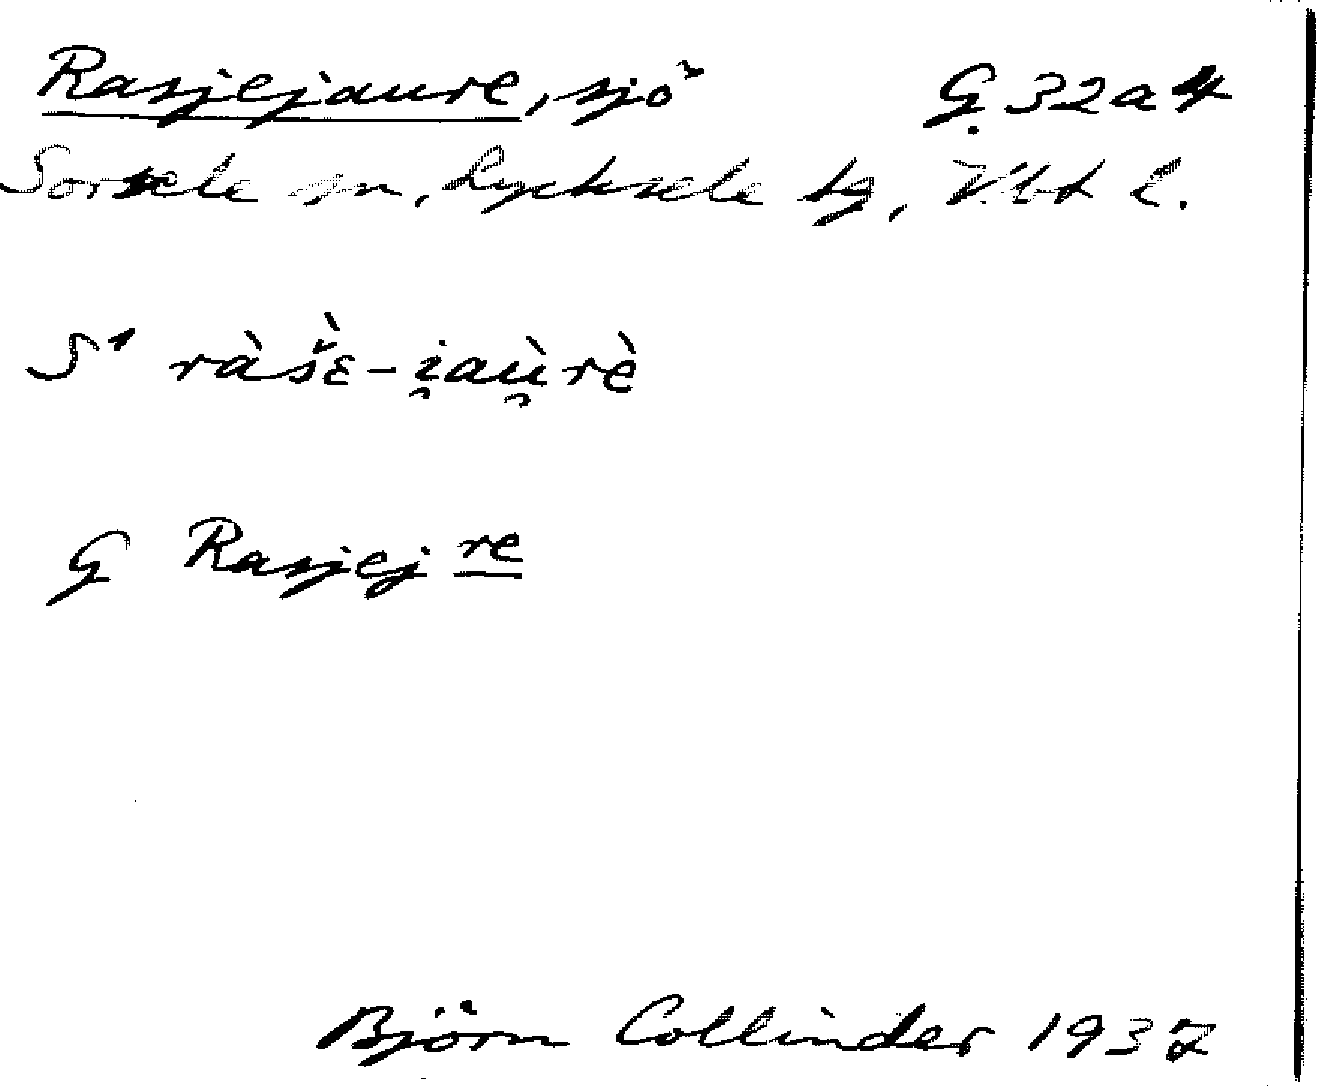 Rasjejaure, sjö G. 32a4
Sorsele sn, Lycksele tg, Vbt l.
S¹ ràš̀ɛ-i̯aù̯rè
G Rasjej re
Björn Collinder 1937